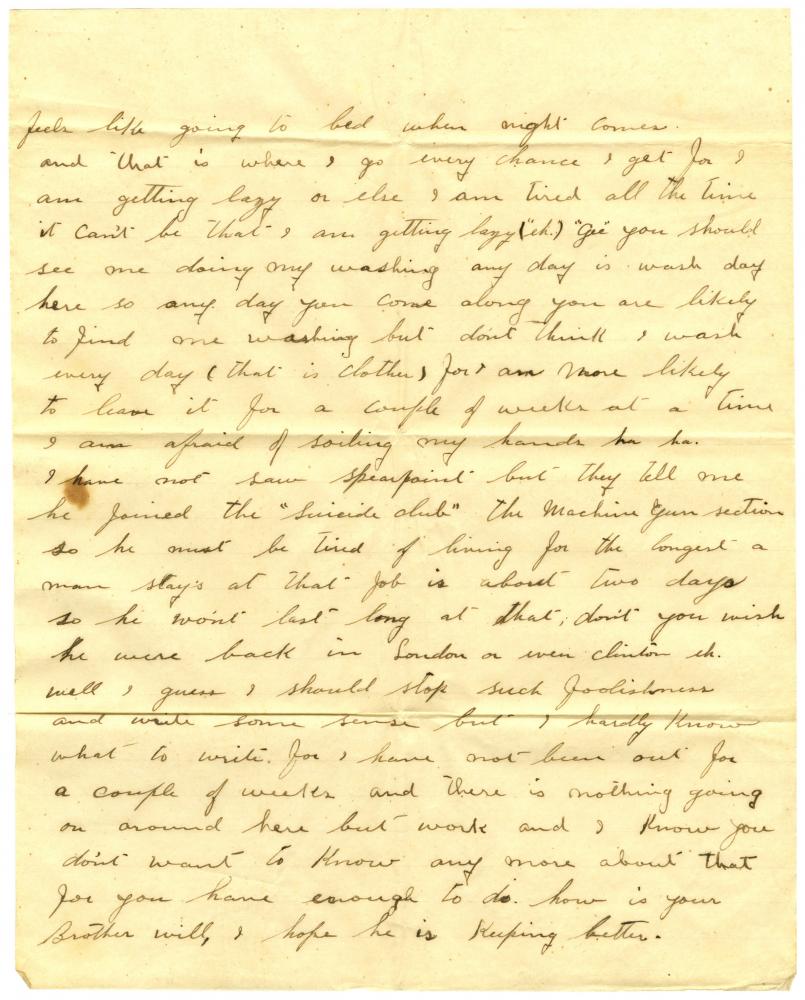 feels like going to bed when night comes.
and that is where I go every chance I get for I
am getting lazy or else I am tired all the time
it can't be that I am getting lazy ("eh.) "Gee" you should
see me doing my washing any day is wash day
here so any day you come along you are likely
to find me washing but don't think I wash
every day (that is clothes) for I am more likely
to leave it for a couple of weeks at a time
I am afraid of soiling my hands ha ha.
I have not saw spearpoint but they tell me
he joined the "Suicide club" the Machine Gun section
so he must be tired of living for the longest a
man stay's at that job is about two days
so he won't last long at that, don't you wish
he were back in London or even clinton eh.
well I guess I should stop such foolishness
and write some sense but I hardly Know
what to write. for I have not been out for
a couple of weeks and there is nothing going
on around here but work and I Know you
don't want to Know any more about that
for you have enough to do. how is your
Brother will, I hope he is Keeping better.